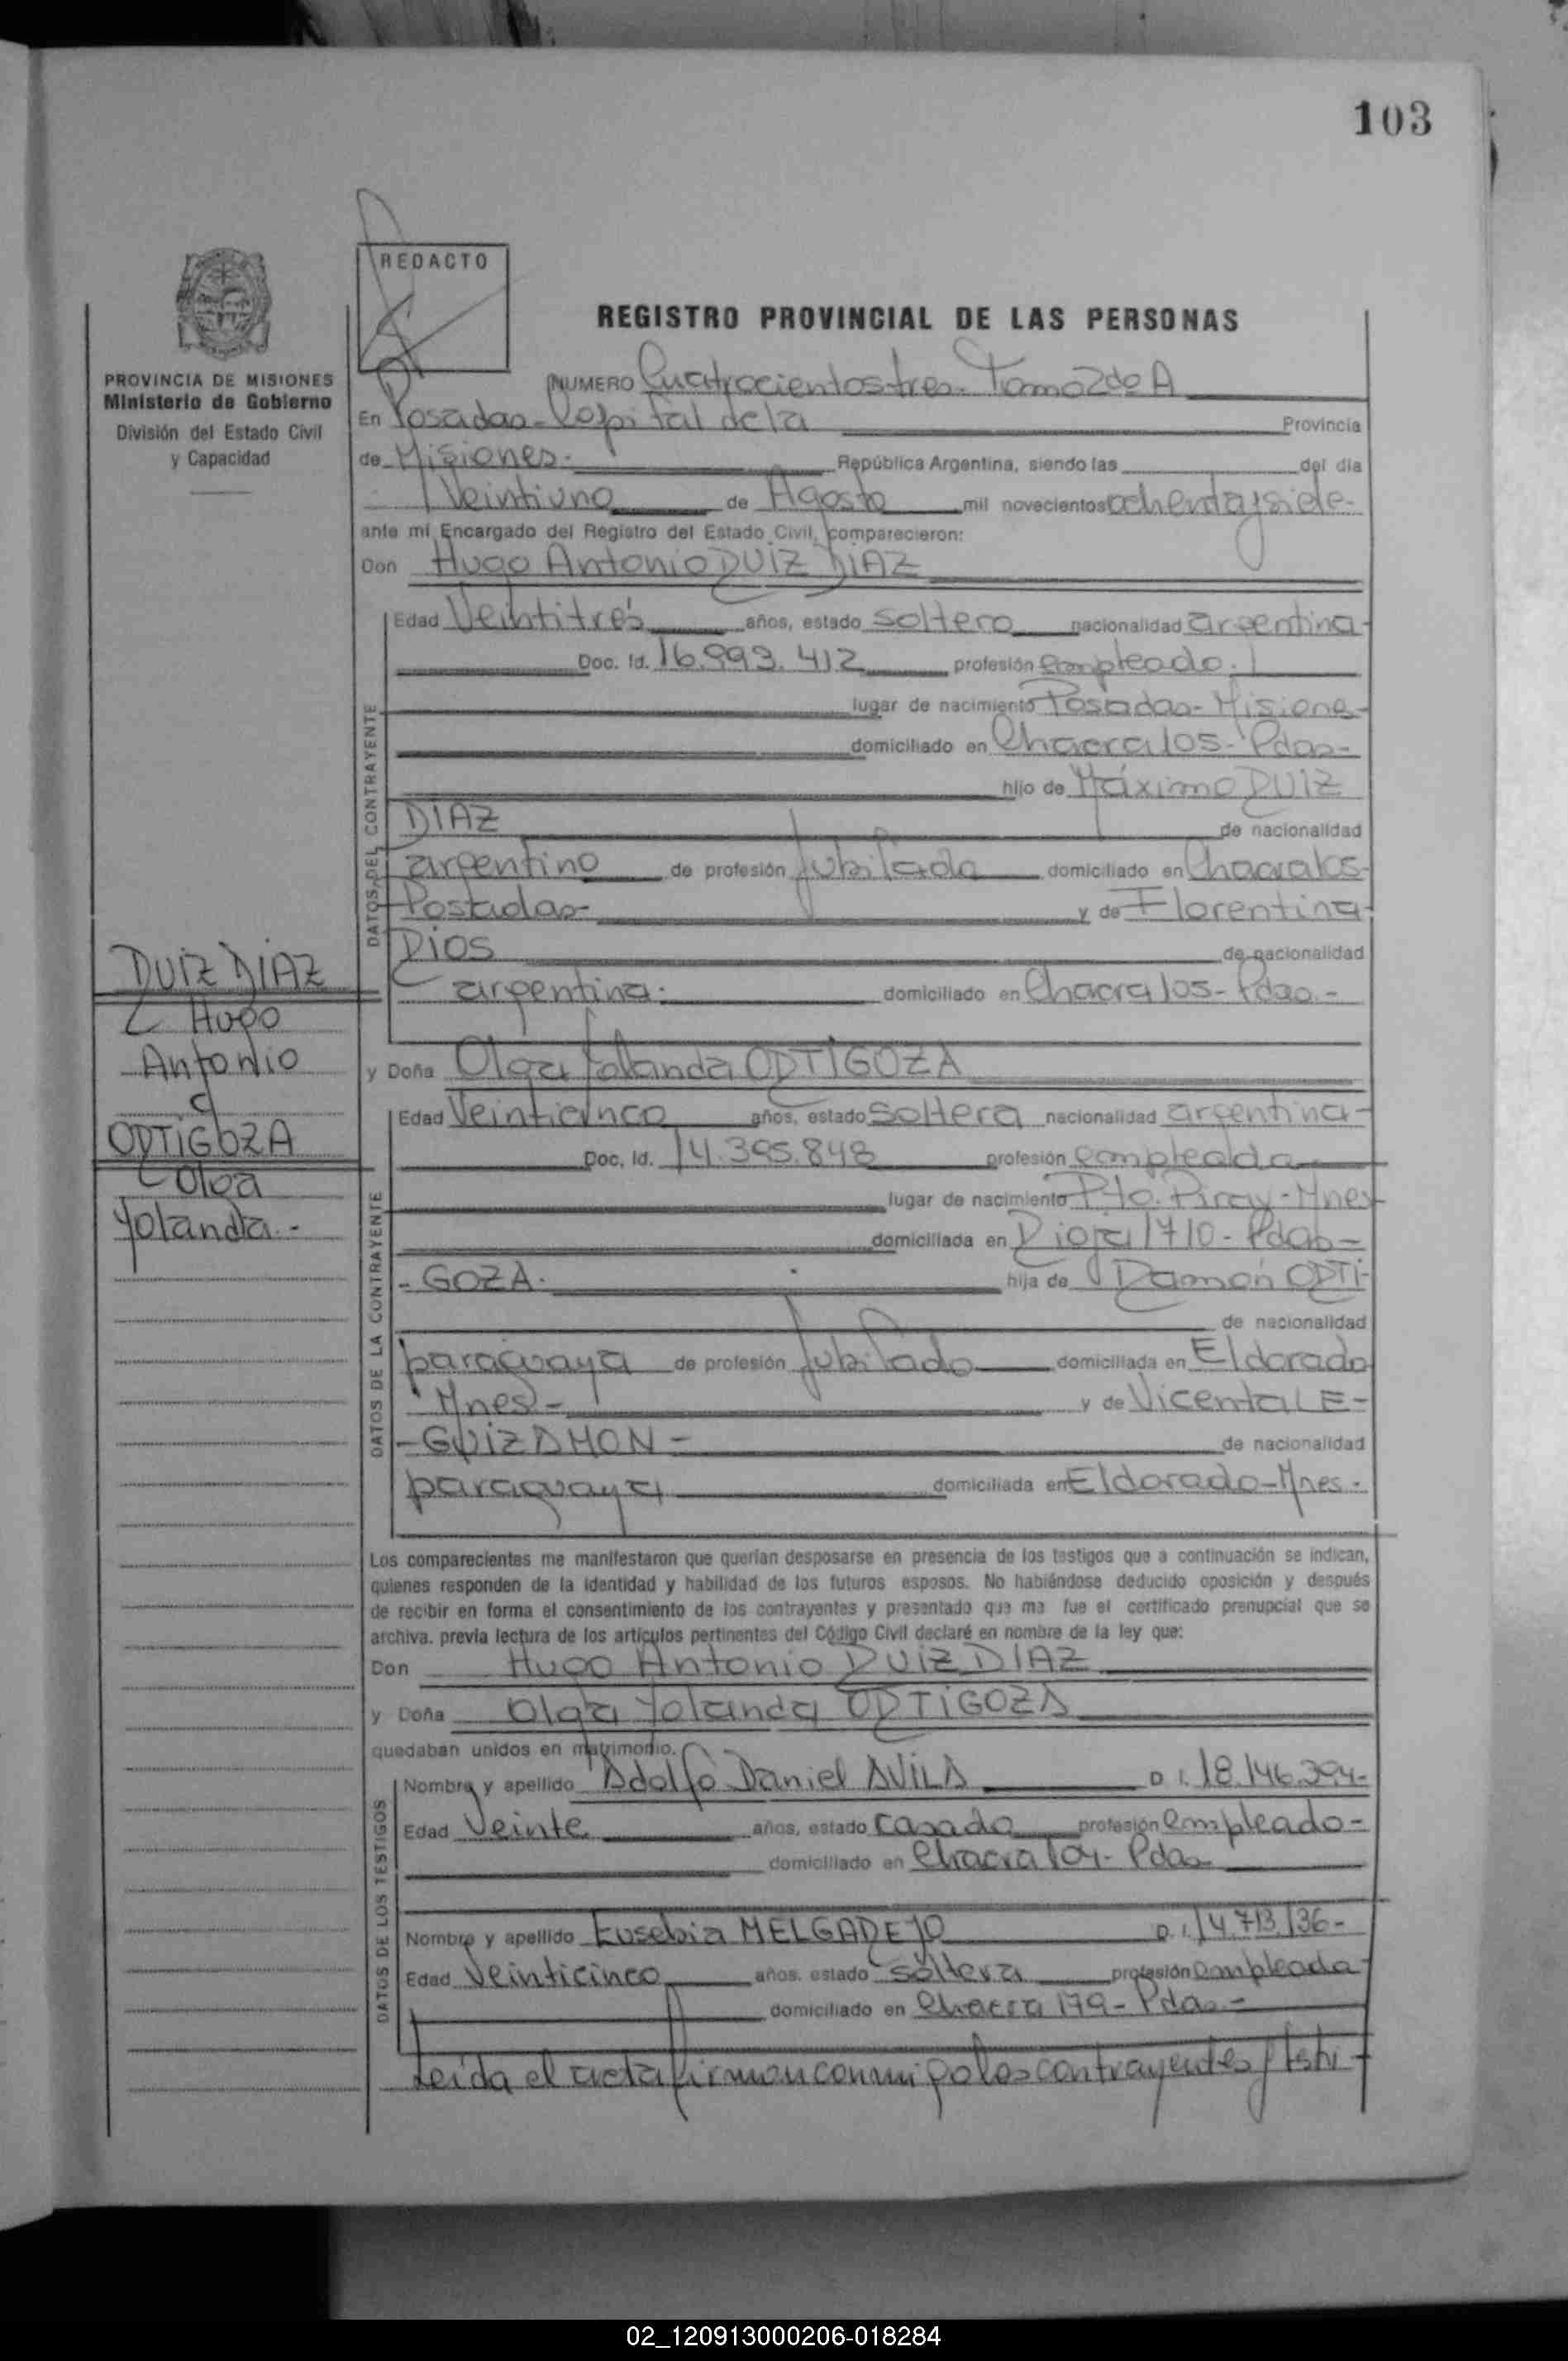 103
REDACTO
REGISTRO PROVINCIAL DE LAS PERSONAS
PROVINCIA DE MISIONES
Ministerio de Gobierno
División del Estado Civil
y Capacidad
NUMERO Cuatrocientos tres - Tomo 2do A
En Posadas - Capital de la Provincia
de Misiones - República Argentina, siendo las del día
Veintiuno de Agosto mil novecientos ochenta y siete -
ante mí Encargado del Registro del Estado Civil, comparecieron:
Don Hugo Antonio RUIZ DIAZ
Edad Veintitrés años, estado soltero nacionalidad argentina -
Doc. Id. 16.993.412 profesión empleado.
lugar de nacimiento Posadas - Misiones -
domiciliado en Chacra 105 - Pdas -
hijo de Máximo RUIZ
DIAZ de nacionalidad
argentino de profesión Jubilado domiciliado en Chacra 105 -
Posadas - y de Florentina
RIOS de nacionalidad
argentina. domiciliado en Chacra 105 - Pdas. -
y Doña Olga Yolanda ORTIGOZA
Edad Veinticinco años, estado soltera nacionalidad argentina -
Doc. Id. 14.395.848 profesión empleada
lugar de nacimiento Pto. Piray - Mnes
domiciliada en Rioja 1710 - Pdas -
- GOZA. hija de Ramón ORTI-
de nacionalidad
paraguaya de profesión Jubilado domiciliada en Eldorado
Mnes - y de Vicenta LE -
- GUIZAMON - de nacionalidad
paraguaya domiciliada en Eldorado - Mnes.
RUIZ DIAZ
Hugo
Antonio
c
ORTIGOZA
Olga
Yolanda. -
DATOS DEL CONTRAYENTE
DATOS DE LA CONTRAYENTE
Los comparecientes me manifestaron que querían desposarse en presencia de los testigos que a continuación se indican,
quienes responden de la identidad y habilidad de los futuros esposos. No habiéndose deducido oposición y después
de recibir en forma el consentimiento de los contrayentes y presentado que me fue el certificado prenupcial que se
archiva. previa lectura de los artículos pertinentes del Código Civil declaré en nombre de la ley que:
Don Hugo Antonio RUIZ DIAZ
y Doña Olga Yolanda ORTIGOZA
quedaban unidos en matrimonio.
DATOS DE LOS TESTIGOS
Nombre y apellido Adolfo Daniel AVILA D. I. 18.146.394 -
Edad Veinte años, estado casado profesión empleado -
domiciliado en Chacra - Pdas
Nombre y apellido Eusebia MELGAREJO D. I. 14.713.136 -
Edad Veinticinco años, estado soltera profesión empleada
domiciliado en Chacra 179 - Pdas -
Leída el acta firman conmigo los contrayentes y testi -
02_120913000206-018284